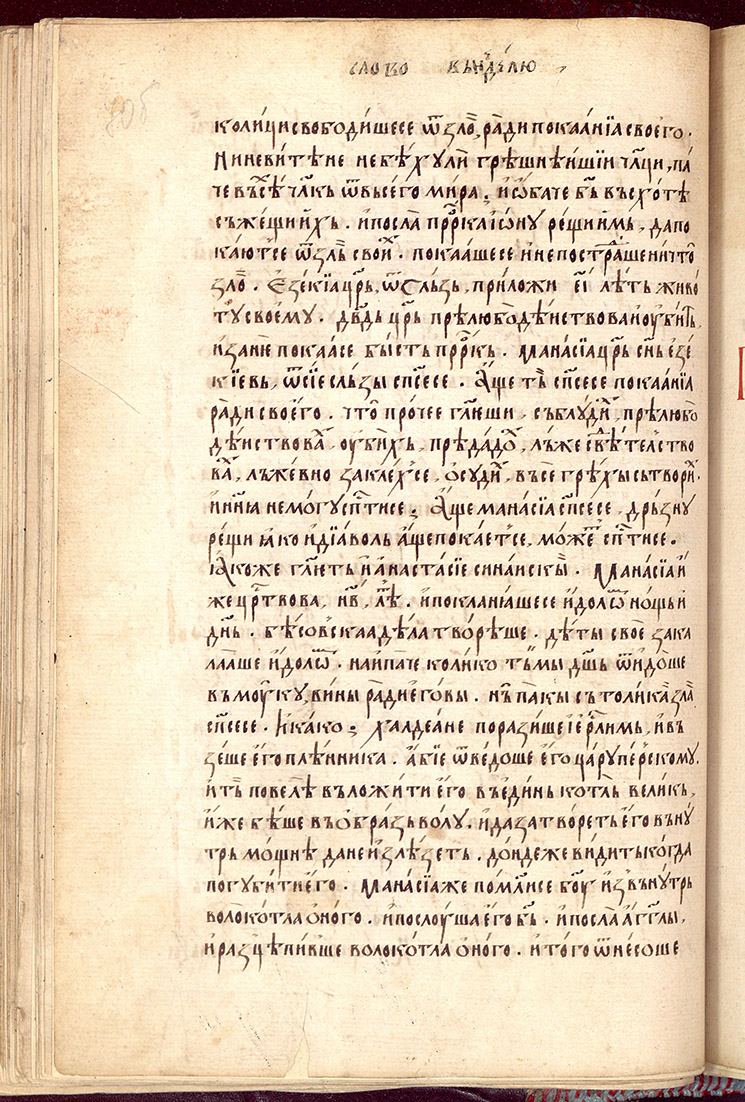 слово въ нⷣелю
колици свободишесе ѿ злѡ, ради покаꙗнїа своего.
Ниневитѣне не бѣхꙋ ли грѣшнѣишїи чл҃ци, па
че въсѣⷯ чл҃къ ѿ всего мира; и ѡбаче бг҃ъ въсхотѣ
съжещи ихъ. и посла прⷪ҇рка іѡнꙋ рещи имь, да по
каютсе ѿ зль своиⷯ. покаашесе и не пострадаше ничто
зло. Езекїа цр҃ь, ѿ сльзь, приложи еі лѣть живо
тꙋ своемꙋ. дв҃дь цр҃ь прѣлюбодѣиствова и оубить,
и зане покаасе бысть прⷪ҇ркъ. Манасїа цр҃ь сн҃ь езе
кїевь, ѿ сїе сльзы сп҃сесе. Аще ть сп҃сесе покаанїа
ради своего. что прочее гл҃еши, съблꙋдиⷯ, прѣлюбо
дѣиствоваⷯ, оубихь, прѣдадоⷯ, лъжесвѣдѣтелство
ваⷯ, лъжевно заклехсе, осꙋдиⷯ, въсе грѣхы сътвориⷯ.
и инїа не могꙋ сп҃стисе; Аще манасїа сп҃сесе, дрьзнꙋ
рещи ꙗко и дїаволь аще покаетсе, можеть сп҃стисе.
Ꙗкоже гл҃еть и анастасїе синаискы. Манасїа и
же цр҃твова, нв҃, лѣⷮ. и покланꙗшесе идолѡⷨ нощь и
дн҃ь. бѣсовскаа дѣла твореше. дѣты свое зака
лааше идолѡⷨ. наипаче колико тьмы дш҃ь ѿидоше
въ мꙋкꙋ, вины ради еговы. нь пакы съ толика зла
сп҃сесе. И како; халдеане поразише іерⷭ҇лимь, и въ
зеше его плѣнника. абїе ѿведоше его царꙋ перскомꙋ.
и ть повелѣ въложити его въ единь котль великь,
иже бѣше въ образь волꙋ. и да затвореть его вънꙋ
трь мощнѣ да не излѣзеть. дондеже видит ы когда
погꙋбит и его. Манасїа же помлисе богꙋ извънꙋтрь
воло котла оного. и послоуша его бг҃ъ. и посла агг҃лы,
и разцѣпивше воло котла оного. и того ѿнесоше